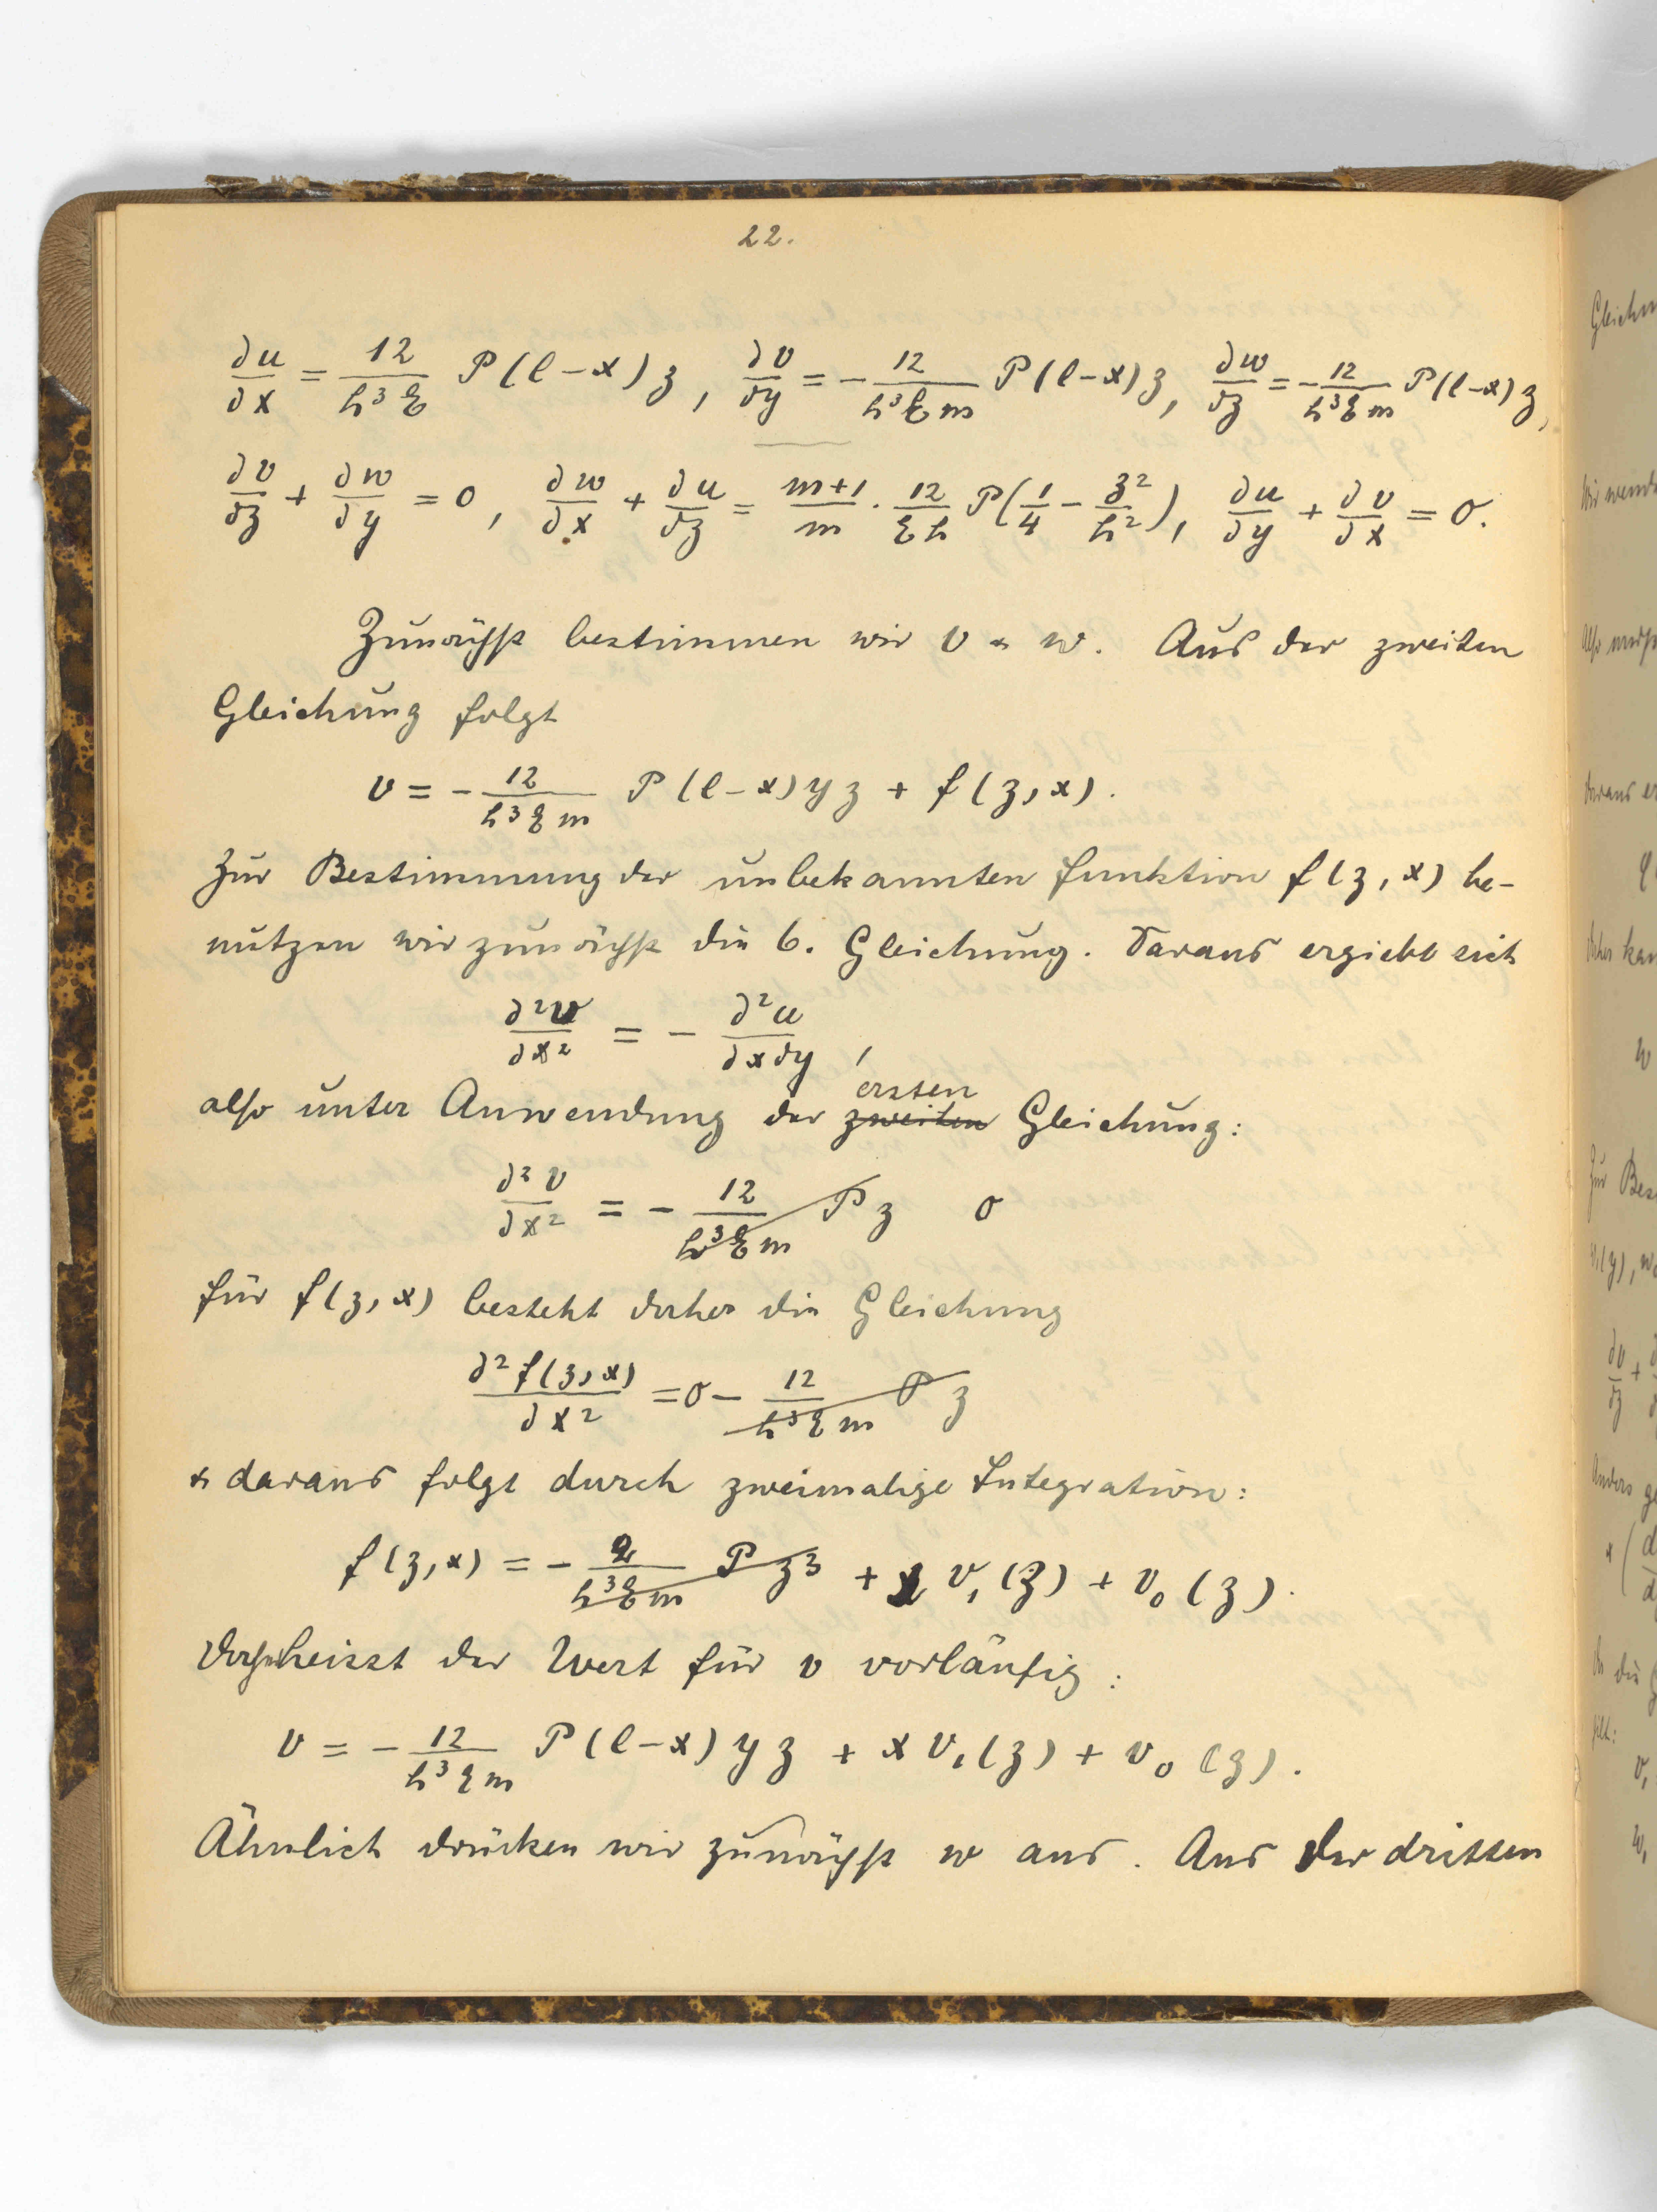 22.
∂u/∂x = 12/(h³E) P(l-x)z, ∂v/∂y = - 12/(h³Em) P(l-x)z, ∂w/∂z = - 12/(h³Em) P(l-x)z,
∂v/∂z + ∂w/∂y = 0, ∂w/∂x + ∂u/∂z = (m+1)/m · 12/(Eh) P(1/4 - z²/h²), ∂u/∂y + ∂v/∂x = 0.
Zunächst bestimmen wir v & w. Aus der zweiten
Gleichung folgt
v = - 12/(h³Em) P(l-x)yz + f(z,x).
Zur Bestimmung der unbekannten Funktion f(z,x) be-
nutzen wir zunächst die 6. Gleichung. Daraus ergiebt sich
∂²v/∂x² = - ∂²u/∂x∂y,
ersten
also unter Anwendung der zweiten Gleichung:
∂²v/∂x² = - 12/(h³Em) P z 0
für f(z,x) besteht daher die Gleichung
∂²f(z,x)/∂x² = 0 - 12/(h³Em) P z
& daraus folgt durch zweimalige Integration:
f(z,x) = - 2/(h³Em) P z³ + x v₁(z) + v₀(z).
Daher heisst der Wert für v vorläufig:
v = - 12/(h³Em) P(l-x)yz + x v₁(z) + v₀(z).
Ähnlich drücken wir zunächst w aus. Aus der dritten